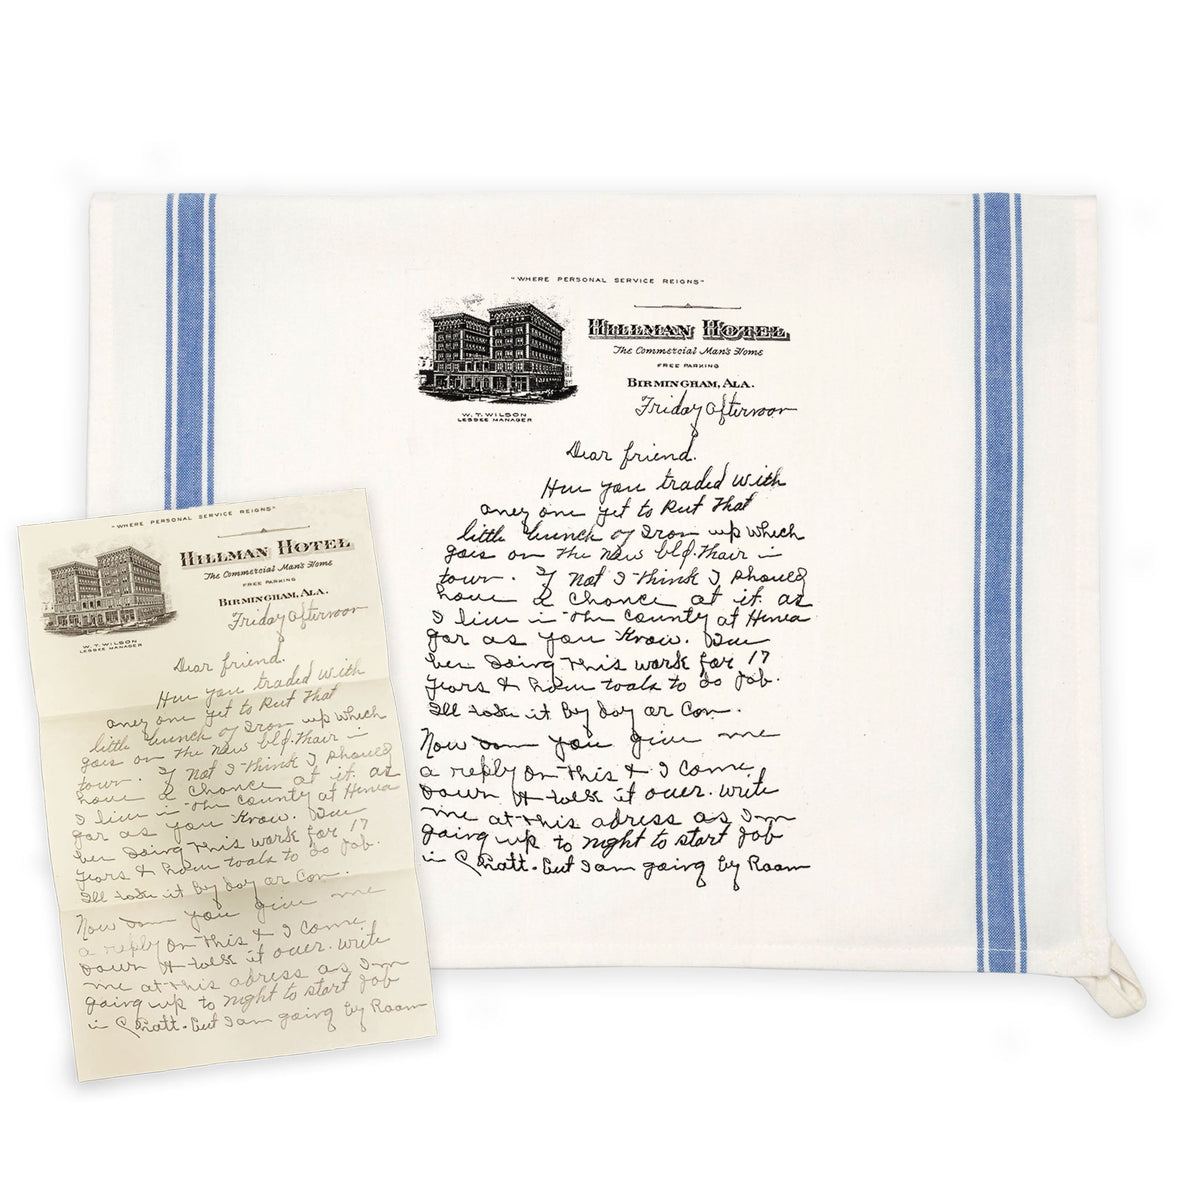 "WHERE PERSONAL SERVICE REIGNS"
HILLMAN HOTEL
The Commercial Man's Home
FREE PARKING
BIRMINGHAM, ALA.
W. T. WILSON
LESSEE MANAGER
Friday afternoon
Dear friend.
Hue you traded with
aney one yet to Put That
little bunch of Iron up which
goes on the new bld. thair in
town. If Not I think I should
have a chance at it. as
I live in the County at
far as you Know.
ben doing this work for 17
years & have toals to do job.
Ill take it by day or Con.
Now you give me
a reply on this & I come
down & talk it over. write
me at this adress as I'm
going up to night to start job
in Pratt. but I am going by Room
"WHERE PERSONAL SERVICE REIGNS"
HILLMAN HOTEL
The Commercial Man's Home
FREE PARKING
BIRMINGHAM, ALA.
W. T. WILSON
LESSEE MANAGER
Friday afternoon
Dear friend.
Hue you traded with
aney one yet to Put That
little bunch of Iron up which
goes on the new bld. thair in
town. If Not I think I should
have a chance at it. as
I live in the County at
far as you Know.
ben doing this work for 17
years & have toals to do job.
Ill take it by day or Con.
Now you give me
a reply on this & I come
down & talk it over. write
me at this adress as I'm
going up to night to start job
in Pratt. but I am going by Room